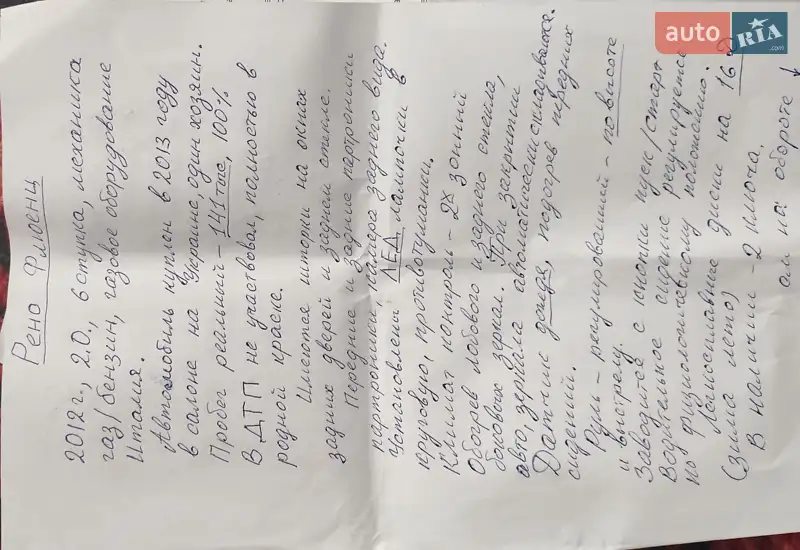 Рено Флюенц
2012 г., 2.0., 6 стутка, механика
газ/бензин, газовое оборудование
Италия.
Автомобиль куплен в 2013 году
в салоне на Украине, один хозяин.
Пробег реальный - 141 тыс, 100%
В ДТП не участвовал, полностью в
родной краске.
Имеются шторки на окнах
задних дверей и заднем стекле.
Передние и задние партроники
партроники, камера заднего вида.
Установлены ЛЕД лампочки в
круговую, противотуманки.
Климат контроль - 2х зонный
Обогрев лобового и заднего стекла,
боковых зеркал. При закрытии
авто, зеркала автоматически складываются.
Датчик дождя, подогрев передних
сидений.
Руль - регулированный - по высоте
и выстрелу.
Заводится с кнопки пуск/старт
Водительское сидение регулируется
по физиологическому положению.
Легкосплавные диски на 16 Р
(зима лето)
В наличии - 2 ключа.
ам на обороте ↓
auto RIA